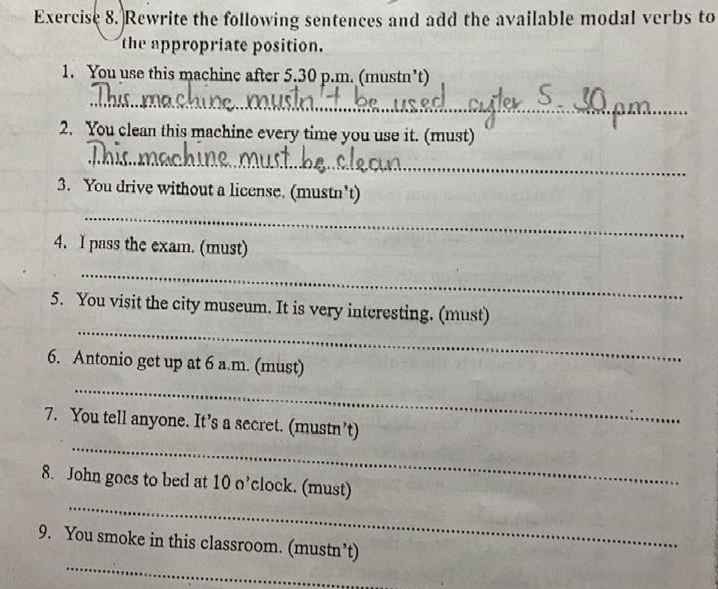 Exercise 8. Rewrite the following sentences and add the available modal verbs to
the appropriate position.
1. You use this machine after 5.30 p.m. (mustn't)
This machine mustn't be used after 5. 30 pm
2. You clean this machine every time you use it. (must)
This machine must be clean
3. You drive without a license. (mustn't)
4. I pass the exam. (must)
5. You visit the city museum. It is very interesting. (must)
6. Antonio get up at 6 a.m. (must)
7. You tell anyone. It's a secret. (mustn't)
8. John goes to bed at 10 o'clock. (must)
9. You smoke in this classroom. (mustn't)